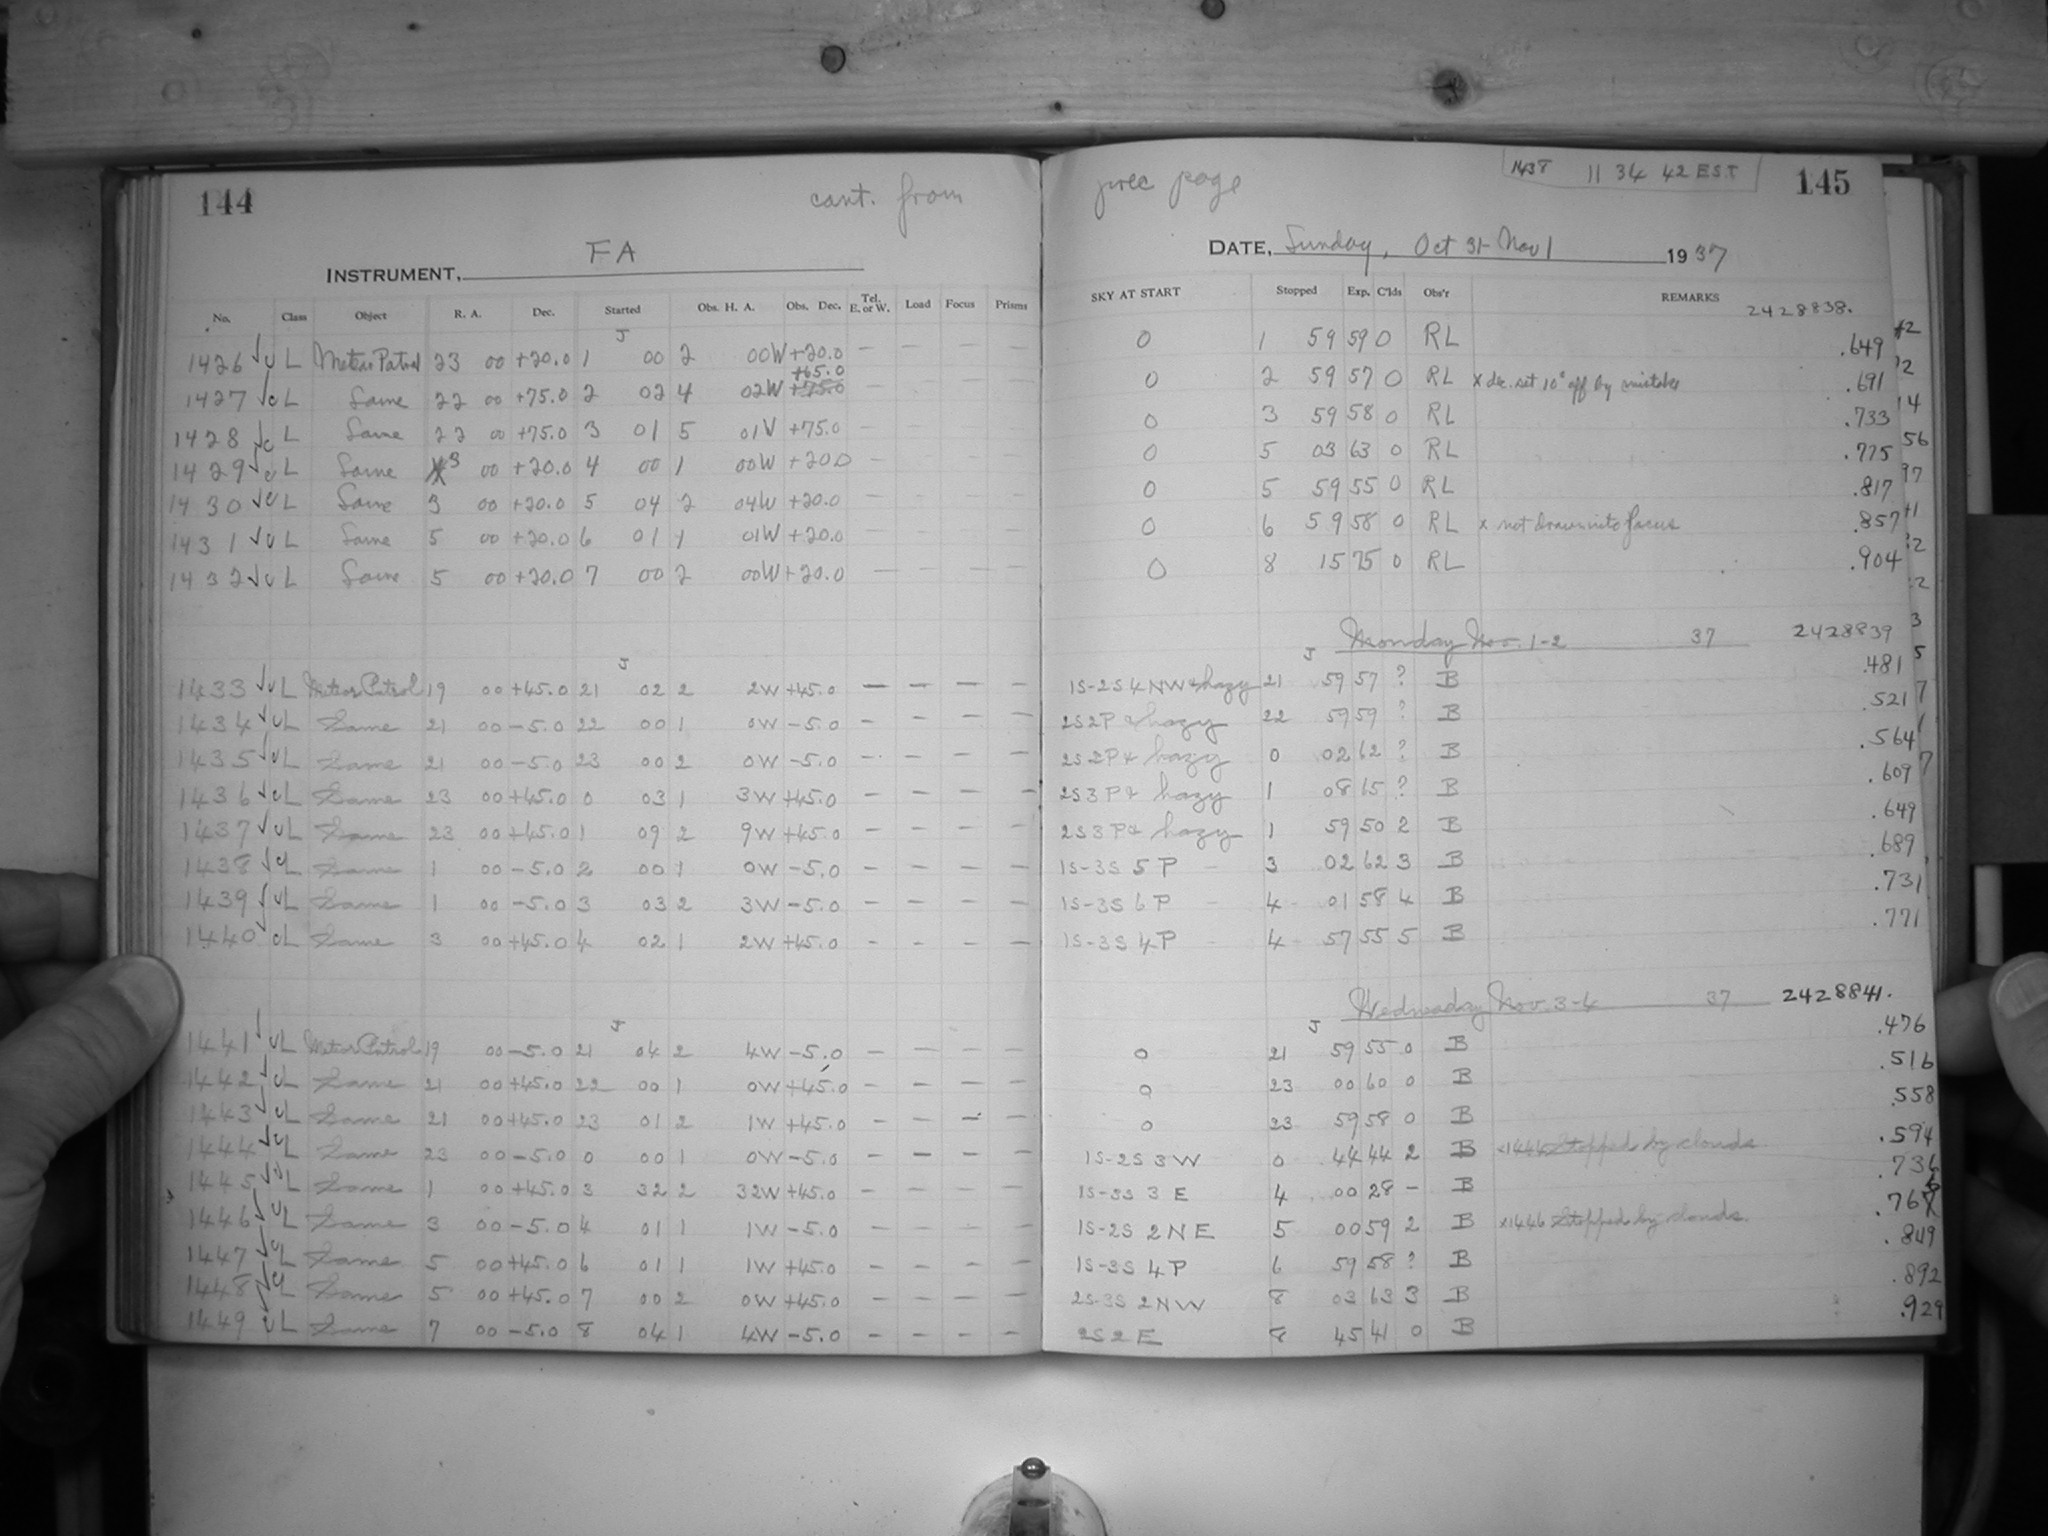 144 cont. from prec page 1438 11 34 42 EST 145
INSTRUMENT, FA DATE, Sunday, Oct 31-Nov 1 1937
No. Class Object R. A. Dec. Started Obs. H. A. Obs. Dec. Tel. E. or W. Load Focus Prisms SKY AT START Stopped Exp. C'lds Obs'r REMARKS 2428838.
J
1426 L Meteor Patrol 23 00 +20.0 1 00 2 00W +20.0 — — — — 0 1 59 59 0 RL .649
+65.0
1427 L Same 22 00 +75.0 2 02 4 02W +75.0 — — — — 0 2 59 57 0 RL x dec. set 10° off by mistake .691
1428 L Same 22 00 +75.0 3 01 5 01W +75.0 — — — — 0 3 59 58 0 RL .733
1429 L Same 3 00 +20.0 4 00 1 00W +20.0 — — — — 0 5 03 63 0 RL .775
1430 L Same 3 00 +20.0 5 04 2 04W +20.0 — — — — 0 5 59 55 0 RL .817
1431 L Same 5 00 +20.0 6 01 1 01W +20.0 — — — — 0 6 59 58 0 RL x not drawn into focus .857
1432 L Same 5 00 +20.0 7 00 2 00W +20.0 — — — — 0 8 15 75 0 RL .904
Monday Nov. 1-2 37 2428839
J J
1433 L Meteor Patrol 19 00 +45.0 21 02 2 2W +45.0 — — — — 1S-2S 4NW & hazy 21 59 57 ? B .481
1434 L Same 21 00 -5.0 22 00 1 0W -5.0 — — — — 2S 2P & hazy 22 59 59 ? B .521
1435 L Same 21 00 -5.0 23 00 2 0W -5.0 — — — — 2S 2P & hazy 0 02 62 ? B .564
1436 L Same 23 00 +45.0 0 03 1 3W +45.0 — — — — 2S 3P & hazy 1 08 65 ? B .609
1437 L Same 23 00 +45.0 1 09 2 9W +45.0 — — — — 2S 3P & hazy 1 59 50 2 B .649
1438 L Same 1 00 -5.0 2 00 1 0W -5.0 — — — — 1S-3S 5P 3 02 62 3 B .689
1439 L Same 1 00 -5.0 3 03 2 3W -5.0 — — — — 1S-3S 6P 4 01 58 4 B .731
1440 L Same 3 00 +45.0 4 02 1 2W +45.0 — — — — 1S-3S 4P 4 57 55 5 B .771
Wednesday Nov. 3-4 37 2428841.
J J
1441 L Meteor Patrol 19 00 -5.0 21 04 2 4W -5.0 — — — — 0 21 59 55 0 B .476
1442 L Same 21 00 +45.0 22 00 1 0W +45.0 — — — — 0 23 00 60 0 B .516
1443 L Same 21 00 +45.0 23 01 2 1W +45.0 — — — — 0 23 59 58 0 B .558
1444 L Same 23 00 -5.0 0 00 1 0W -5.0 — — — — 1S-2S 3W 0 44 44 2 B x1444 Stopped by clouds. .594
1445 L Same 1 00 +45.0 3 32 2 32W +45.0 — — — — 1S-3S 3E 4 00 28 - B .736
1446 L Same 3 00 -5.0 4 01 1 1W -5.0 — — — — 1S-2S 2NE 5 00 59 2 B x1446 Stopped by clouds. .76
1447 L Same 5 00 +45.0 6 01 1 1W +45.0 — — — — 1S-3S 4P 6 59 58 ? B .849
1448 L Same 5 00 +45.0 7 00 2 0W +45.0 — — — — 2S-3S 2NW 8 03 63 3 B .892
1449 L Same 7 00 -5.0 8 04 1 4W -5.0 — — — — 2S 2E 8 45 41 0 B .929